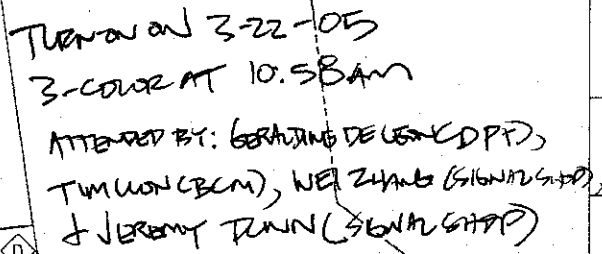 TURN-ON ON 3-22-05
3-COLOR AT 10:58AM
ATTENDED BY: GERALDINE DE LEON (DPT),
TIM WON (BCM), WEI ZHANG (SIGNAL SHOP),
& JEREMY DUNN (SIGNAL SHOP)